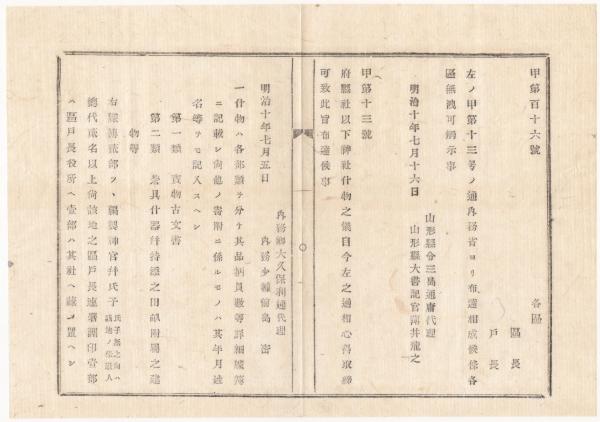 甲第百十六號
各區
區長
戶長
左ノ甲第十三号ノ通内務省ヨリ布達相成候條各
區無洩可觸示事
山形縣令三島通庸代理
明治十年七月十六日
山形縣大書記官薄井龍之
甲第十三號
府縣社以下神社什物之儀自今左之通相心得取締
可致此旨布達候事
内務卿大久保利通代理
明治十年七月五日
内務少輔前島密
一什物ハ各部類ヲ分ケ其品柄員數等詳細
ニ記載シ尚他ノ寄附ニ係ルモノハ其年月迄
名等ヲモ記入スヘシ
第一類 寶物古文書
第二類 祭具什器幷持添之田畑附屬之建
物等
右簿壹部ヲ、調製神官幷氏子
氏子無之向ハ
總代貳名以上尚該地之區戸長連署調印壹部
ハ區戸長役所ヘ壹部ハ其社ヘ藏メ置ヘシ